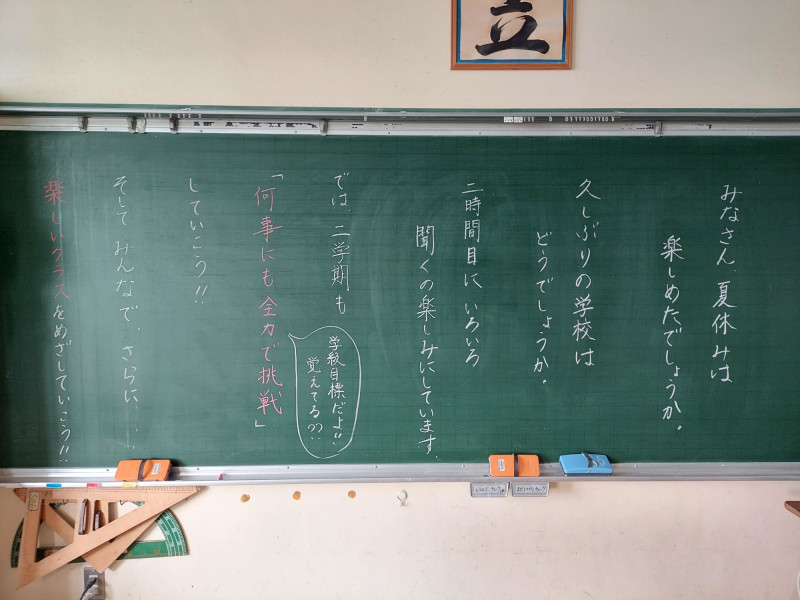 立
みなさん、夏休みは
楽しめたでしょうか。
久しぶりの学校は
どうでしょうか。
二時間目に、いろいろ
聞くの楽しみにしています。
では、二学期も
「何事にも全力で挑戦」
学級目標だよ!!
覚えてる??
していこう!!
そして みんなで、さらに...
楽しいクラスをめざしていこう!!